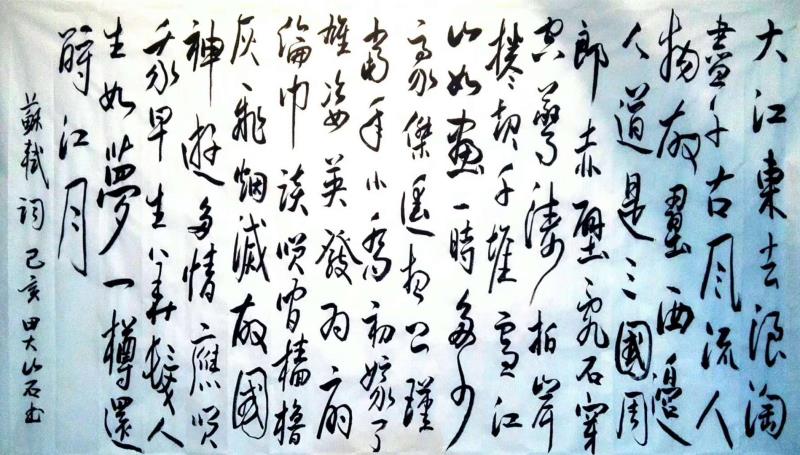 大江東去浪淘
盡千古風流人
物故壘西邊
人道是三國周
郎赤壁亂石穿
空驚濤拍岸
捲起千堆雪江
山如畫一時多少
豪傑遙想公瑾
當年小喬初嫁了
雄姿英發羽扇
綸巾談笑間檣櫓
灰飛烟滅故國
神遊多情應笑
我早生華髮人
生如夢一樽還
酹江月
蘇軾詞己亥田大山石書